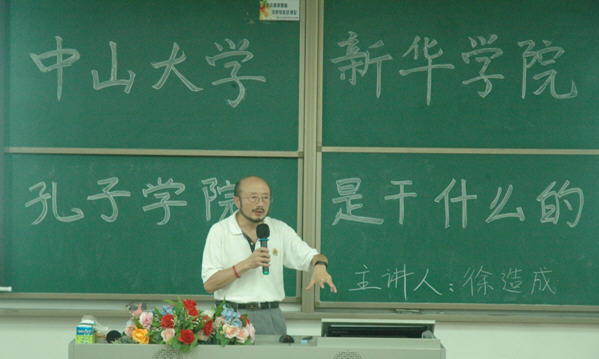 中山大学 新华学院
孔子学院 是干什么的
主讲人：徐造成